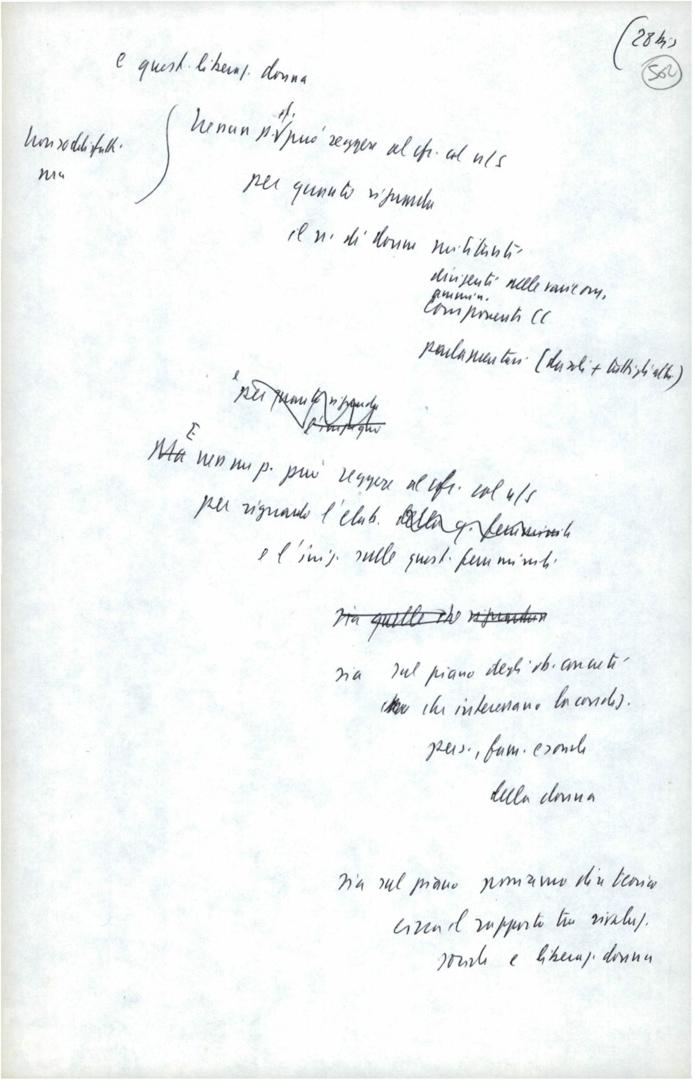 (28 bis
502
e quest. liberaz. donna
non soddisfatti
ma
Nessun p. pol. può reggere al cfr. col n/s
per quanto riguarda
il n. di donne militanti
dirigenti nelle
ammin.
componenti CC
parlamentari (da soli + tutti gli altri)
e per quanto riguarda
Ma E nessun p. può reggere al cfr. col n/s
per riguardo l'elab. della q. femminile
e l'iniz. sulle quest. femminili
sia quelle che riguardano
sia sul piano degli ob. concreti
che interessano la condiz.
pers., fam. e sociale
della donna
sia sul piano possiamo dire teorico
circa il rapporto tra rivoluz.
sociale e liberaz. donna